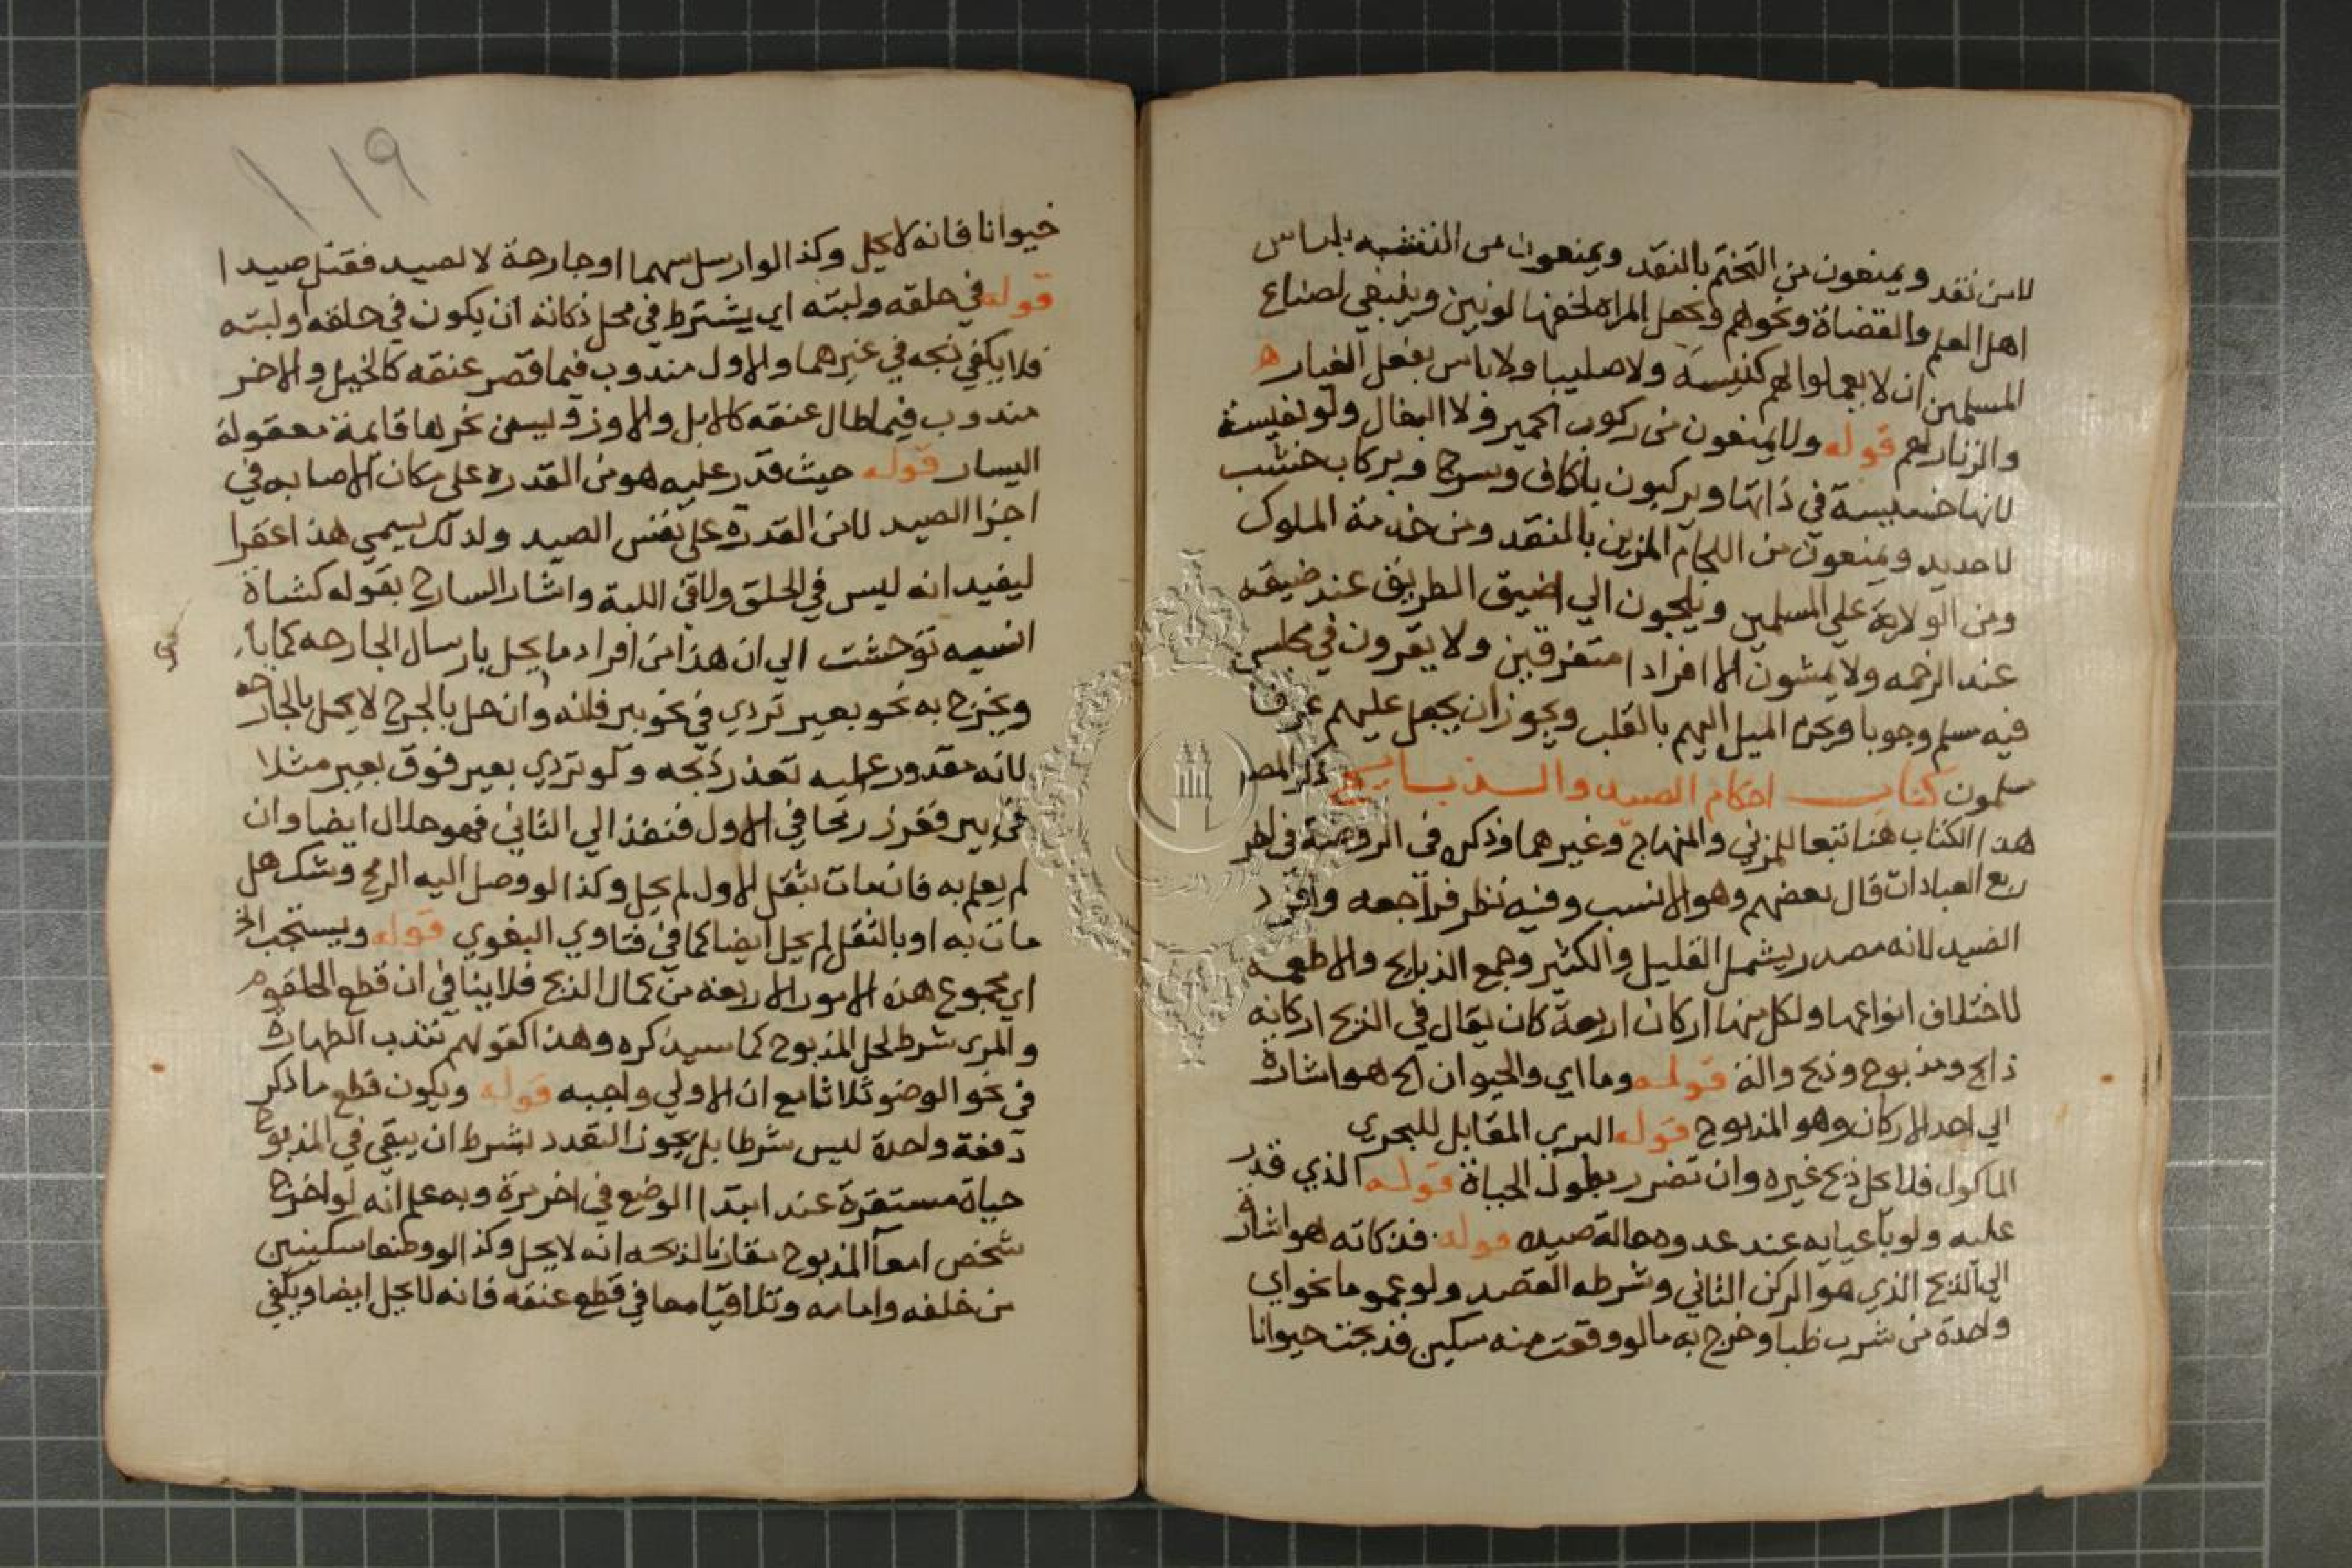 لا من نقد ويمنعون من التختم بالنقد ويمنعون من التشبه بلباس
اهل العلم والقضاة ونحوهم وتجعل المراه لخفها لونين وينبغي لصناع
المسلمين ان لا يعملوا لهم كنيسة ولا صليبا ولا باس بفعل الغيار ه
والزنار لهم قوله ولا يمنعون من ركوب الحمير ولا البغال ولو نفيسة
لانها خسيسة في ذاتها ويركبون باكاف وسرج وبركاب خشب
لا حديد ويمنعون من اللجام المزين بالنقد ومن خدمة الملوك
ومن الولاية علي المسلمين ويلجون الي اضيق الطريق عند ضيقه
عند الزحمه ولا يمشون الا افرادا متفرقين ولا يقرون في مجلس
فيه مسلم وجوبا ويحرم الميل اليهم بالقلب ويجوز ان يجعل عليهم عرفا
مسلمون كتاب احكام الصيد والذبايح ذكر المصـ
هذا الكتاب هنا تبعا للمزني والمنهاج وغيرهما وذكره في الروضة في اخر
ربع العبادات قال بعضهم وهو الانسب وفيه نظر فراجعه وافرد
الصيد لانه مصدر يشمل القليل والكثير وجمع الذبايح والاطعمه
لاختلاف انواعها ولكل منها اركان اربعة كان يقال في الذبح اركانه
ذابح ومذبوح وذبح والة قوله وما اي والحيوان الخ هو اشارة
الي احد الاركان وهو المذبوح قوله البري المقابل للبحري
الماكول فلا يحل ذبح غيره وان تضرر بطول الحياة قوله الذي قدر
عليه ولو باعيايه عند عدوه حالة صيده قوله فذكاته هو اشارة
الي الذبح الذي هو الركن الثاني وشرطه القصد ولو عموما نحو اي
واحدة من سرب ظبا وخرج به ما لو وقعت منه سكين فذبحت حيوانا
١١٩
حيوانا فانه لا يحل وكذا لو ارسل سهما او جارحة لا لصيد فقتل صيدا
قوله في حلقه ولبته اي يشترط في محل ذكاته ان يكون في حلقه او لبته
فلا يكفي ذبحه في غيرهما والاول مندوب فيما قصر عنقه كالخيل والاخر
مندوب فيما طال عنقه كالابل والاوز ويسن نحرها قايمة معقولة
اليسار قوله حيث قدر عليه هو من القدره على مكان الاصابه في
اجزا الصيد لا من القدره علي نفس الصيد ولذلك يسمي هذا عقرا
ليفيد انه ليس في الحلق ولا في اللبة واشار الشارح بقوله كشاة
انسيه توحشت الي ان هذا من افراد ما يحل بارسال الجارحه كما ياتي
ويخرج به نحو بعير تردي في نحو بير فانه وان حل بالجرح لا يحل بالجارحه
لانه مقدور عليه تعذر ذبحه ولو تردي بعير فوق بعير مثلا
في بير فغرز رمحا في الاول فنفذ الي الثاني فهو حلال ايضا وان
لم يعلم به فان مات بثقل الاول لم يحل وكذا لو وصل اليه الرمح وشك هل
مات به او بالثقل لم يحل ايضا كما في فتاوي البغوي قوله ويستحب الخ
اي مجموع هذه الامور الاربعة من كمال الذبح فلا ينافي ان قطع الحلقوم
والمري شرط لحل المذبوح كما سيذكره وهذا كقولهم تندب الطهارة
في نحو الوضو ثلاثا مع ان الاولي واجبه قوله ويكون قطع ما ذكر
دفعة واحدة ليس شرطا بل يجوز التعدد بشرط ان يبقي في المذبوح
حياة مستقرة عند ابتدا الوضع في اخر مرة وبه علم انه لو اخرج
شخص امعا المذبوح مقارنا لذبحه انه لا يحل وكذا لو وضع سكينين
من خلفه وامامه وتلاقيا معا في قطع عنقه فانه لا يحل ايضا ويكفي